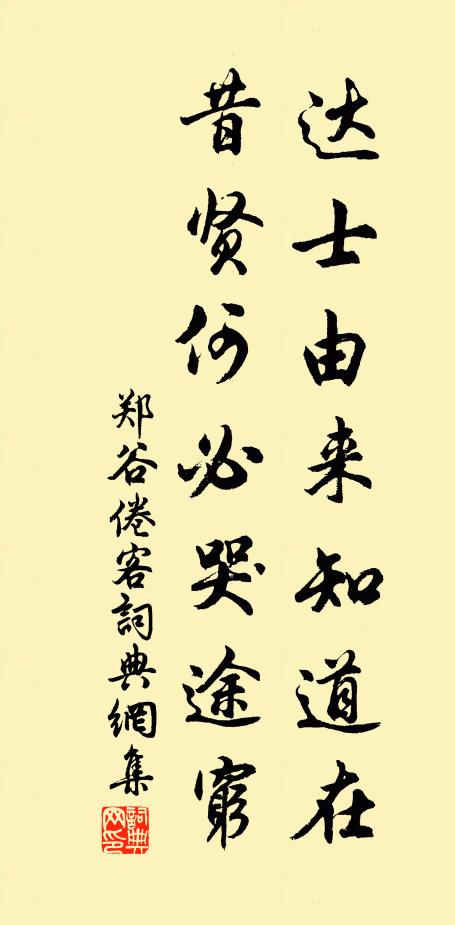 达士由来知道在
昔贤何必哭途穷
郑谷倦客詞典網集
詞典网印